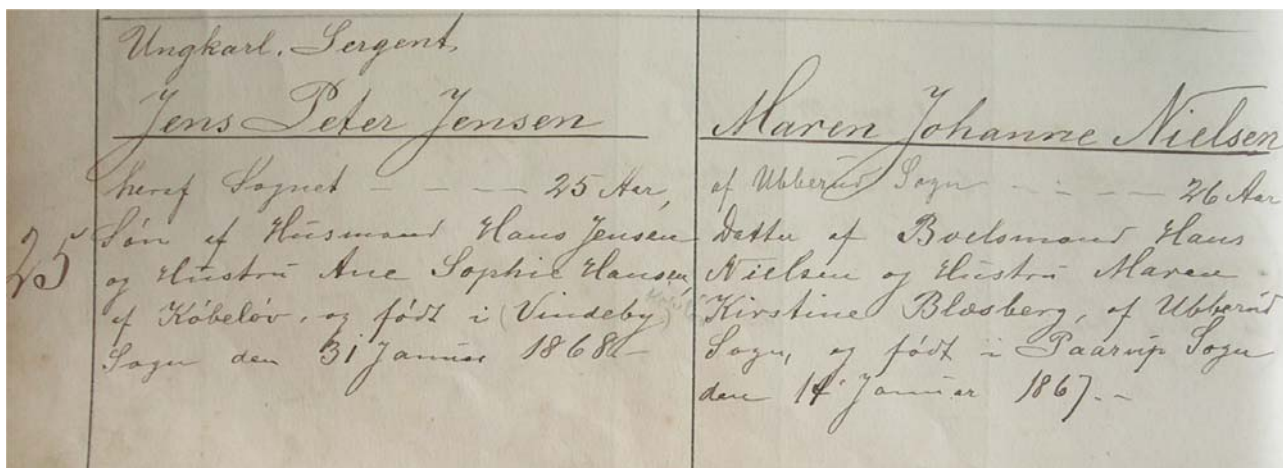 25
Ungkarl. Sergent,
Jens Peter Jensen
heraf Sognet - - - - 25 Aar,
Søn af Husmand Hans Jensen
og Hustru Ane Sophie Hansen,
af Købeløv, og født i (Vindeby)
Sogn den 31 Januar 1868 -
Maren Johanne Nielsen
af Ubberud Sogn - - - - 26 Aar
Datter af Boelsmand Hans
Nielsen og Hustru Maren
Kirstine Blæsberg, af Ubberud
Sogn, og født i Paarup Sogn
den 14 Januar 1867. -